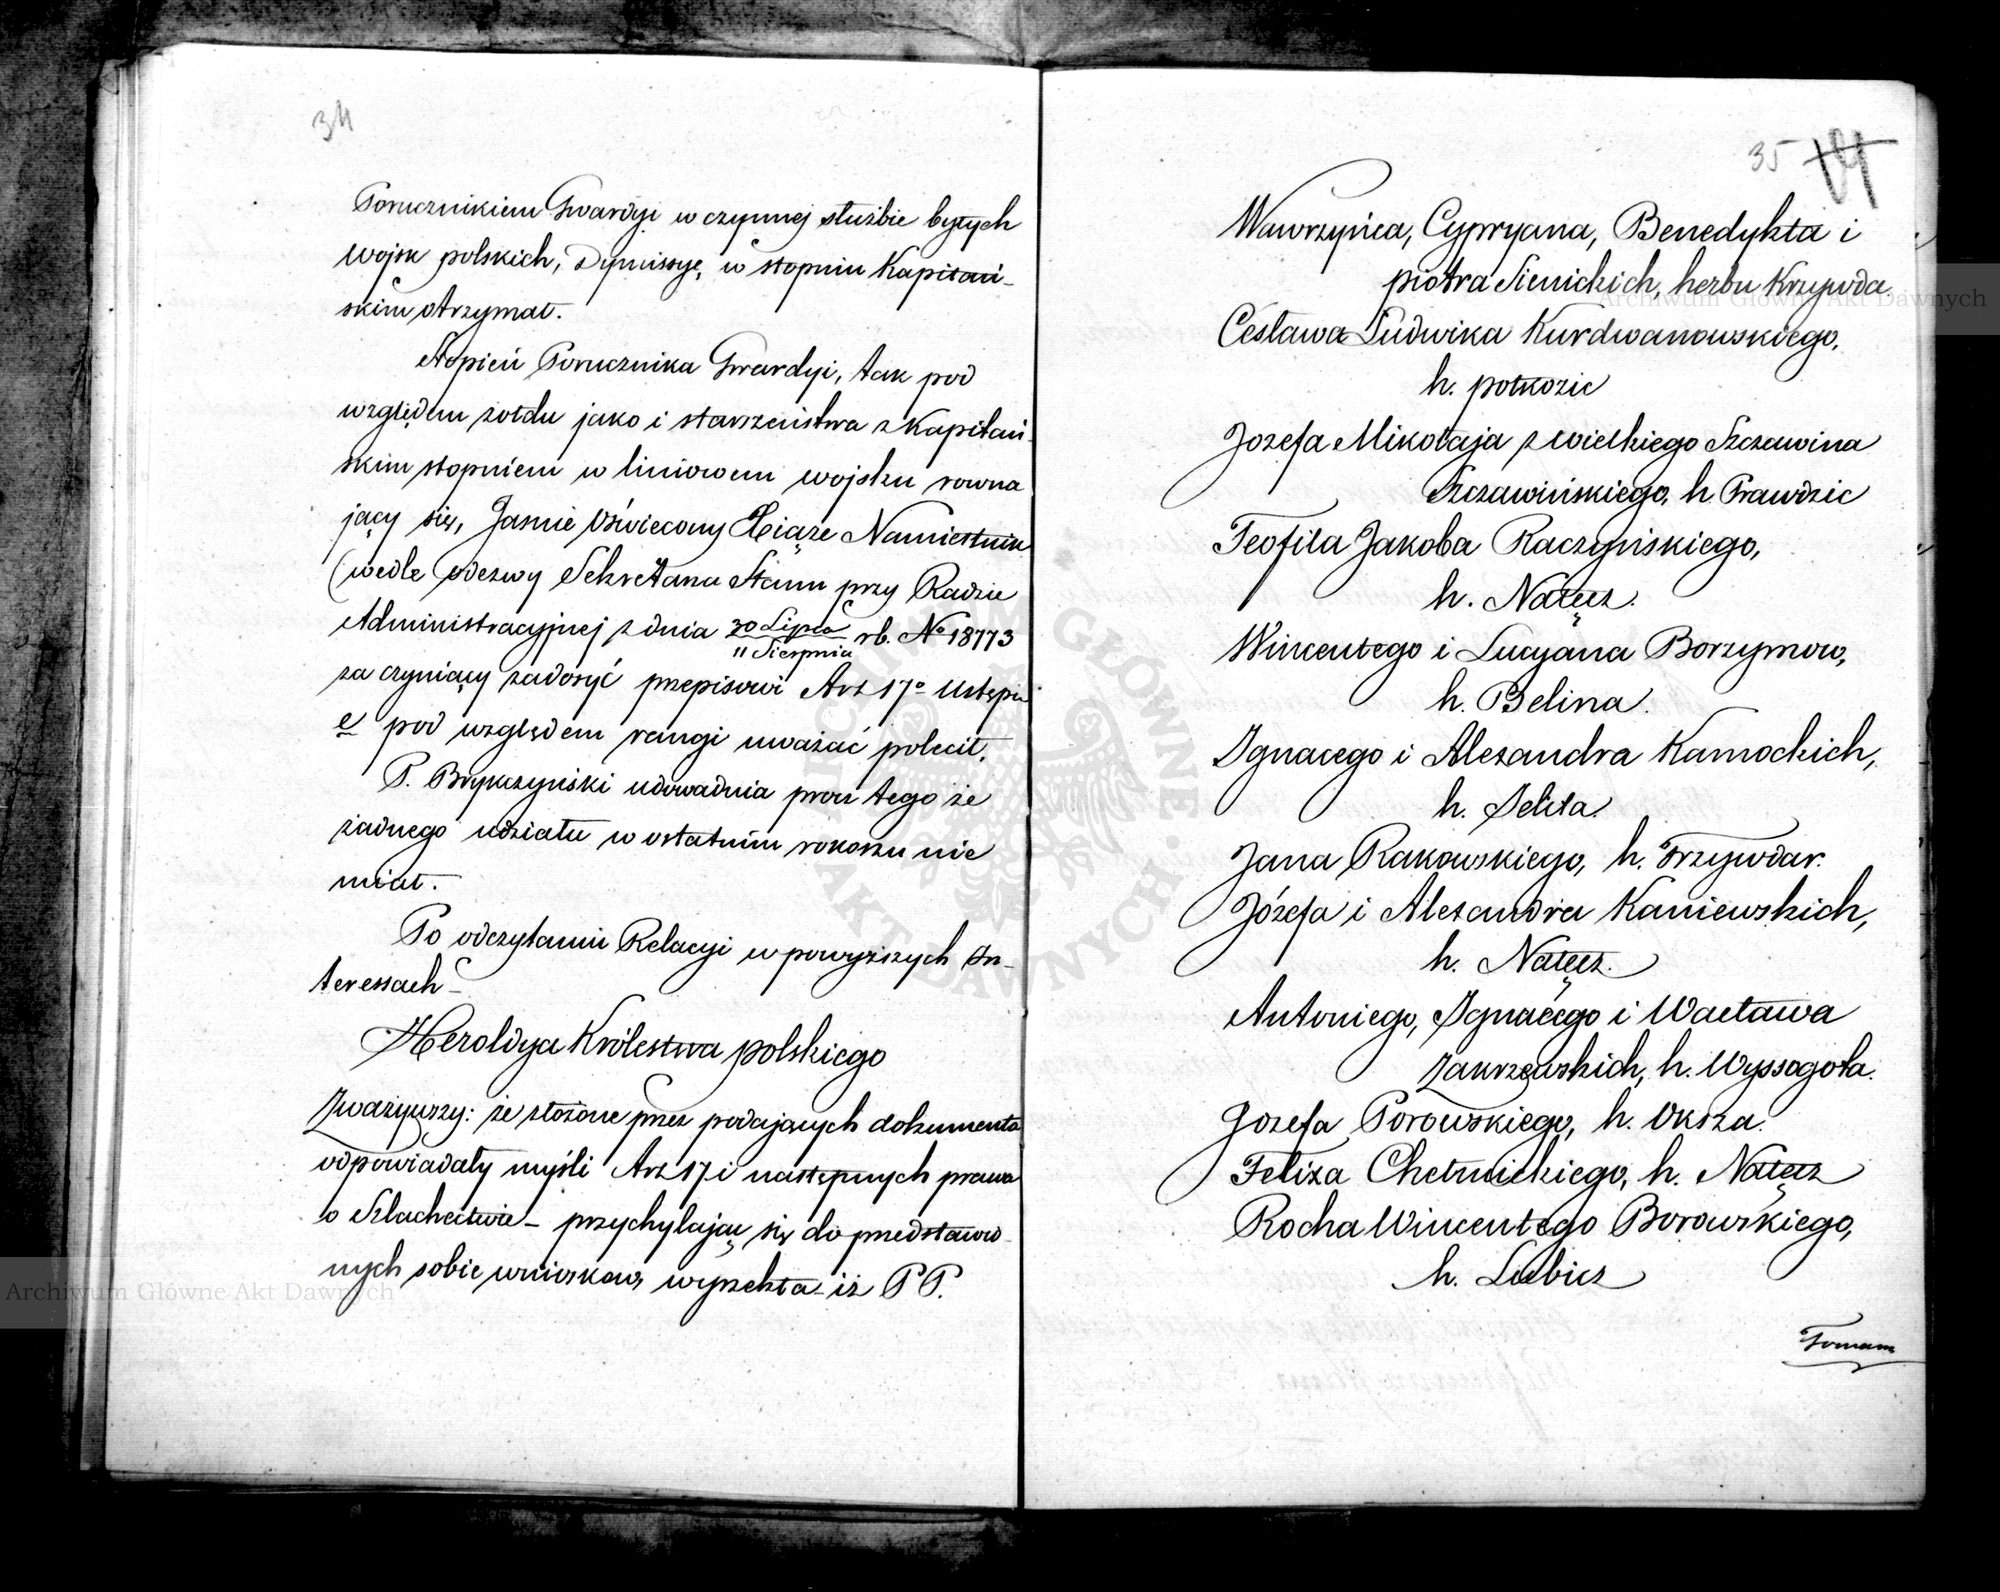 34
Porucznikiem Gwardyi w czynnej służbie byłych
wojsk polskich, dymissyę w stopniu Kapitań-
skim otrzymał.
Stopień Porucznika Gwardyi, tak pod
względem żołdu jako i starszeństwa z Kapitań-
skim stopniem w liniowem wojsku rowna
jący się, Jasnie Oświecony Xiąże Namiestnik
(wedle odezwy Sekretarza Stanu przy Radzie
Administracyjnej z dnia 30 Lipca / 11 Sierpnia rb. No 18773
za czyniący zadosyć przepisowi Art 17o Ustępu
e pod względem rangi uważać polecił.
P. Brykczyński udowadnia prócz tego że
żadnego udziału w ostatnim rokoszu nie
miał.
Po odczytaniu Relacyi w powyższych In-
teressach –
Heroldya Królestwa polskiego
Zważywszy: że złożone przez podających dokumenta
odpowiadały myśli Art 17 i następnych prawa
o Szlachectwie – przychylając się do przedstawio-
nych sobie wniosków, wyrzekła iż PP.
35
Wawrzyńca, Cypryana, Benedykta i
piotra Sienickich, herbu Krzywda
Cesława Ludwika Kurdwanowskiego,
h. połkozic
Jozefa Mikołaja z wielkiego Szczawina
Szczawińskiego, h. Prawdzic
Teofila Jakoba Raczyńskiego,
h. Nałęcz.
Wincentego i Lucyana Borzymow,
h. Belina.
Ignacego i Alexandra Kamockich,
h. Jelita.
Jana Rakowskiego, h. Trzywdar.
Józefa i Alexandra Kaniewskich,
h. Nałęcz.
Antoniego, Ignacego i Wacława
Zakrzewskich, h. Wyssogota.
Jozefa Porowskiego, h. Oksza.
Felixa Chetmickiego, h. Nałęcz
Rocha Wincentego Borowskiego,
h. Lubicz
Archiwum Główne Akt Dawnych
Archiwum Główne Akt Dawnych
ARCHIWUM GŁÓWNE AKT DAWNYCH